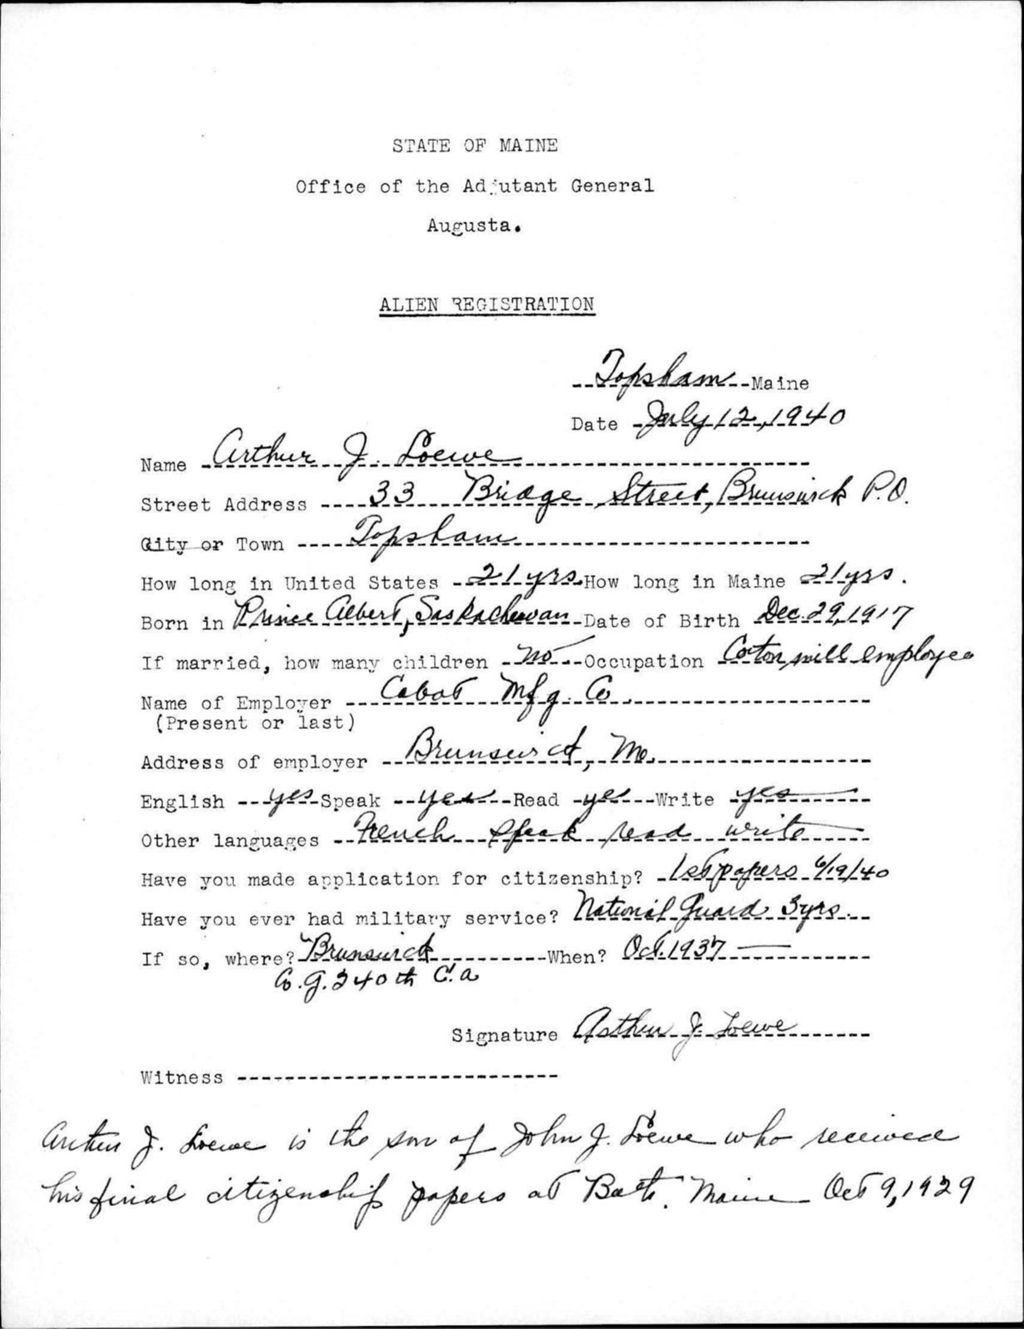 STATE OF MAINE
Office of the Adjutant General
Augusta.
ALIEN REGISTRATION
Topsham Maine
Date July 12, 1940
Name Arthur J. Loewe
Street Address 33 Bridge Street, Brunswick P.O.
City or Town Topsham
How long in United States 21 yrs. How long in Maine 21 yrs.
Born in Prince Albert, Saskachewan Date of Birth Dec. 29, 1917
If married, how many children no Occupation Cotton mill employee
Name of Employer Cabot Mfg. Co.
(Present or last)
Address of employer Brunswick, Me.
English yes Speak yes Read yes Write yes
Other languages French speak read write
Have you made application for citizenship? 1st papers 6/19/40
Have you ever had military service? National Guard 3 yrs.
If so, where? Brunswick When? Oct. 1937
Co. G. 240th C.A
Signature Arthur J. Loewe
Witness
Arthur J. Loewe is the son of John J. Loewe who received
his final citizenship papers at Bath, Maine Oct 9, 1929